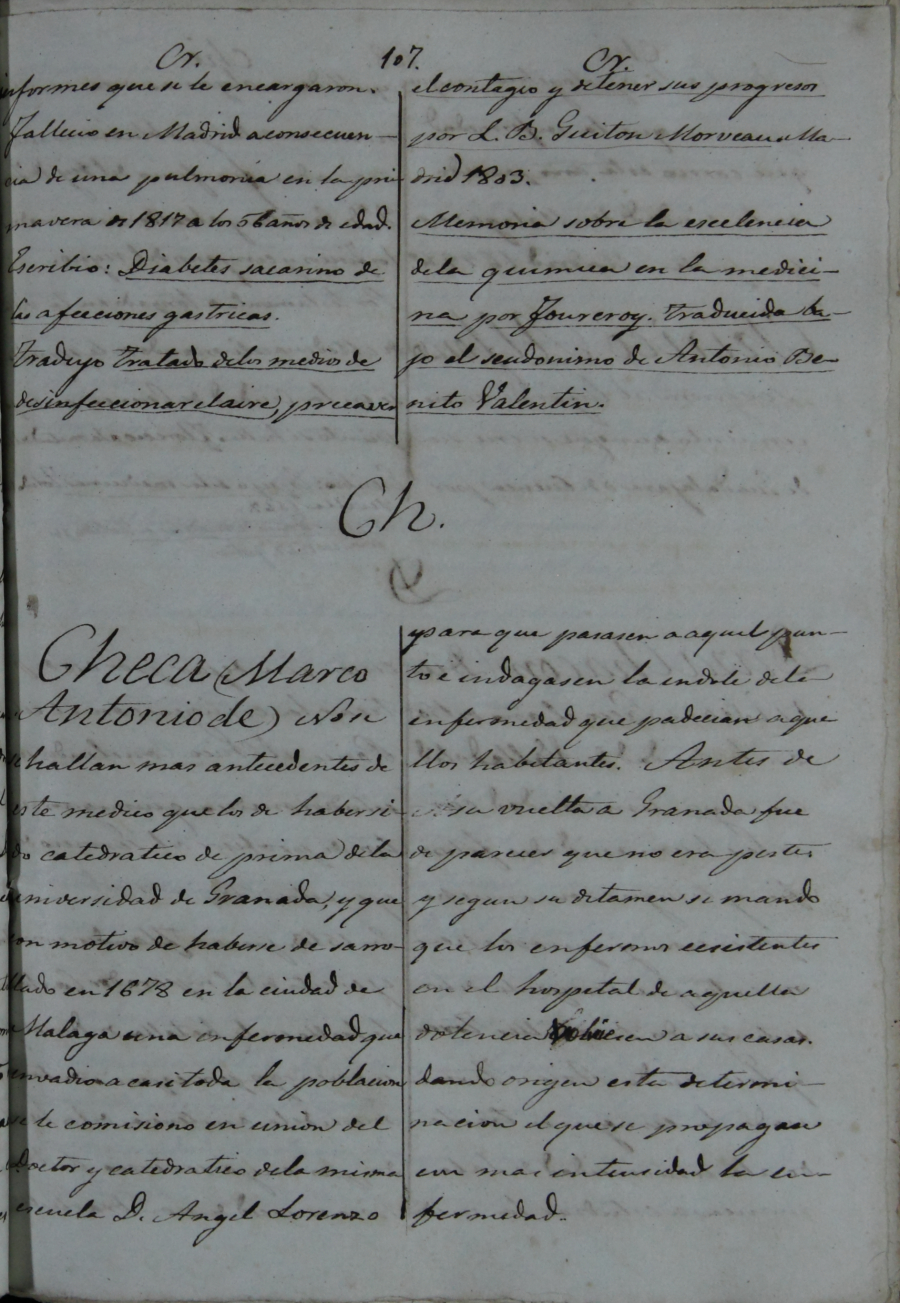 Cr. 107. Cr.
informes que se le encargaron.
Fallecio en Madrid a consecuen-
cia de una pulmonia en la pri-
mavera de 1817 a los 56 años de edad.
Escribio: Diabetes sacarino de
las afecciones gastricas.
Tradujo Tratado de los medios de
desinfeccionar el aire, precaver
el contagio y detener sus progresos
por L. B. Guiton Morveau Ma-
drid 1803.
Memoria sobre la escelencia
de la quimica en la medici-
na por Foureroy. Traducida ba-
jo el seudonimo de Antonio Be-
nito Valentin.
Ch.
Checa (Marco
Antonio de) No se
se hallan mas antecedentes de
este medico que los de haber si-
do catedratico de prima de la
universidad de Granada, y que
con motivo de haberse desarro-
llado en 1678 en la ciudad de
Malaga una enfermedad que
envadio a casi toda la poblacion
se le comisiono en union del
Doctor y catedratico de la misma
escuela D. Angel Lorenzo
para que pasasen a aquel pun-
to e indagasen la indole de la
enfermedad que padecian aque
llos habitantes. Antes de
su vuelta a Granada fue
de parecer que no era peste
y segun su ditamen se mando
que los enfermos ecsistentes
en el hospital de aquella
dolencia en a sus casas.
dando origen esta determi-
nacion el que se propagau
con mas intensidad la en-
fermedad.